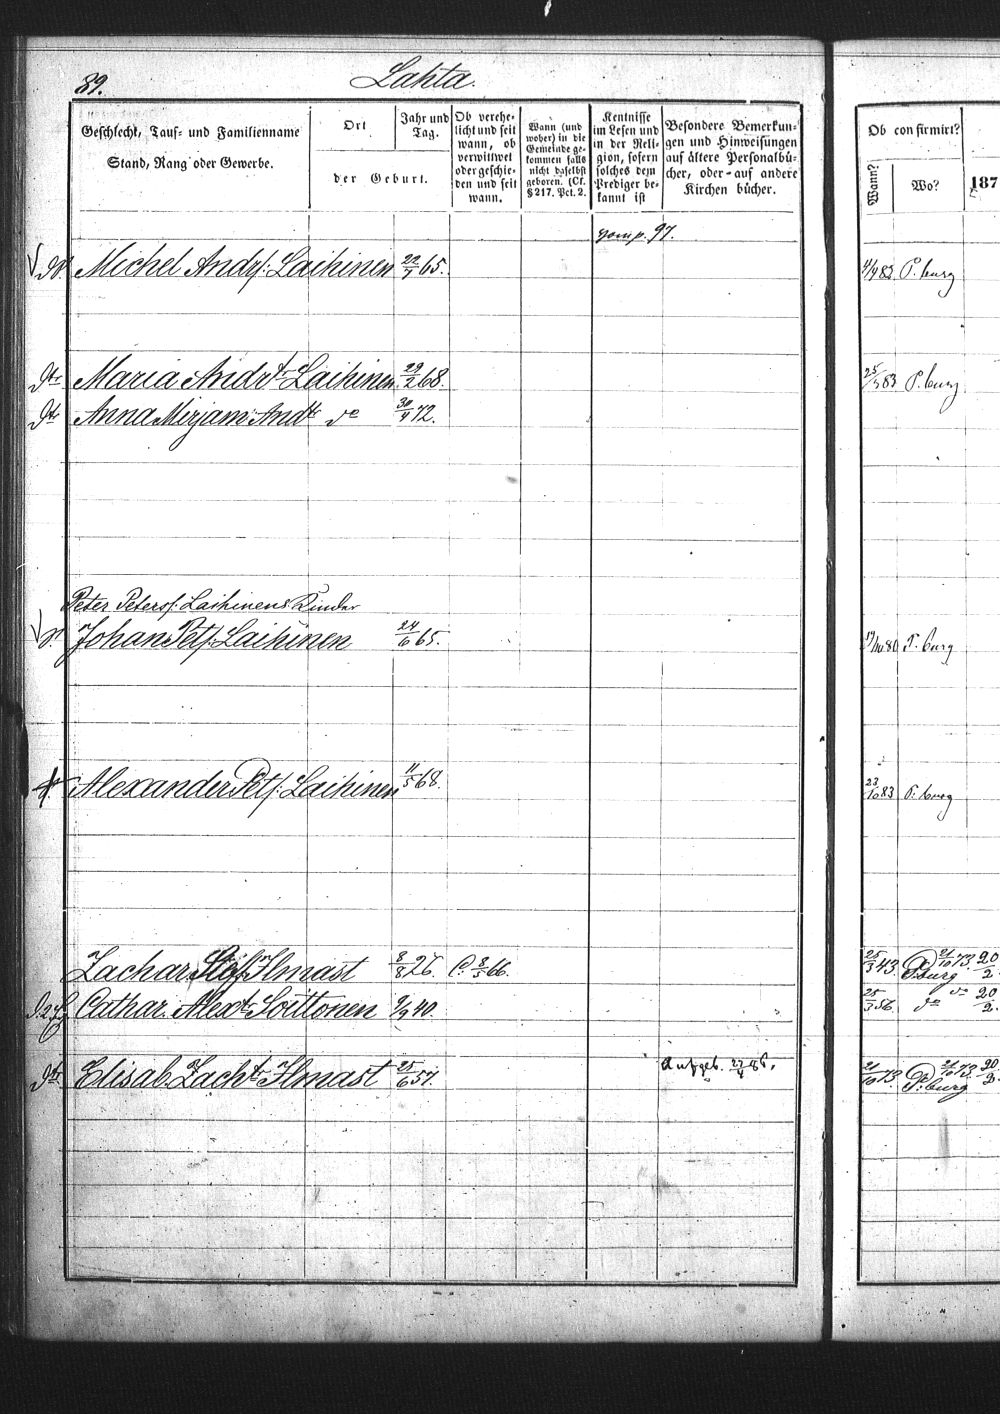 89.
Lahta.
Geschlecht, Tauf- und Familienname
Stand, Rang oder Gewerbe.
Ort
der Geburt.
Jahr und
Tag.
Ob verehe-
licht und seit
wann, ob
verwittwet
oder geschie-
den und seit
wann.
Wann (und
woher) in die
Gemeinde ge-
kommen falls
nicht daselbst
geboren. (Cf.
§ 217. Pct. 2.
Kentnisse
im Lesen und
in der Reli-
gion, sofern
solches dem
Prediger be-
kannt ist
Besondere Bemerkun-
gen und Hinweisungen
auf ältere Personalbü-
cher, oder auf andere
Kirchen bücher.
Ob confirmirt?
Wann?
Wo?
187
97.
Michel Andrs. Laihinen 22/7 65. 4/9 83 P. burg
Maria Andrt. Laihinen 29/2 68. 25/5 83 P. burg
Anna Mirjam Andt. do 30/4 72.
Peter Peters. Laihinens Kinder
Johan Pets. Laihinen 24/6 65. 80 P. burg
Alexander Pets. Laihinen 11/5 68. 23/10 83 P. burg
Zachar Ilmast 8/8 26. C. 8/5 66. 25/3 43. P. burg 21/10 73 20/2
Cathar. Alext. Soittonen 9/9 40. 25/3 56. do do 20/2.
Elisab. Zacht. Ilmast 25/6 57. Aufgeb. 27/4 86. 21/10 73. P. burg 21/10 73 20/2.